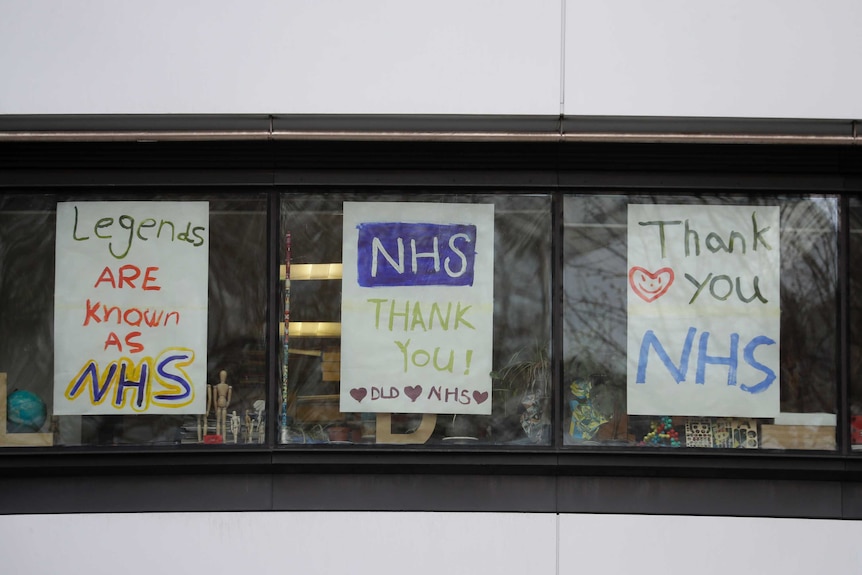 Legends
ARE
known
AS
NHS
NHS
THANK
YOU!
DLD NHS
Thank
you
NHS